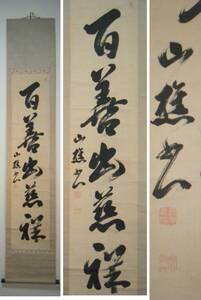 百善出慈祥
山樵書
百善出慈祥
山樵書
山樵書